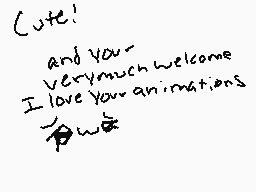 Cute!
and your
verymuch welcome
I love your animations